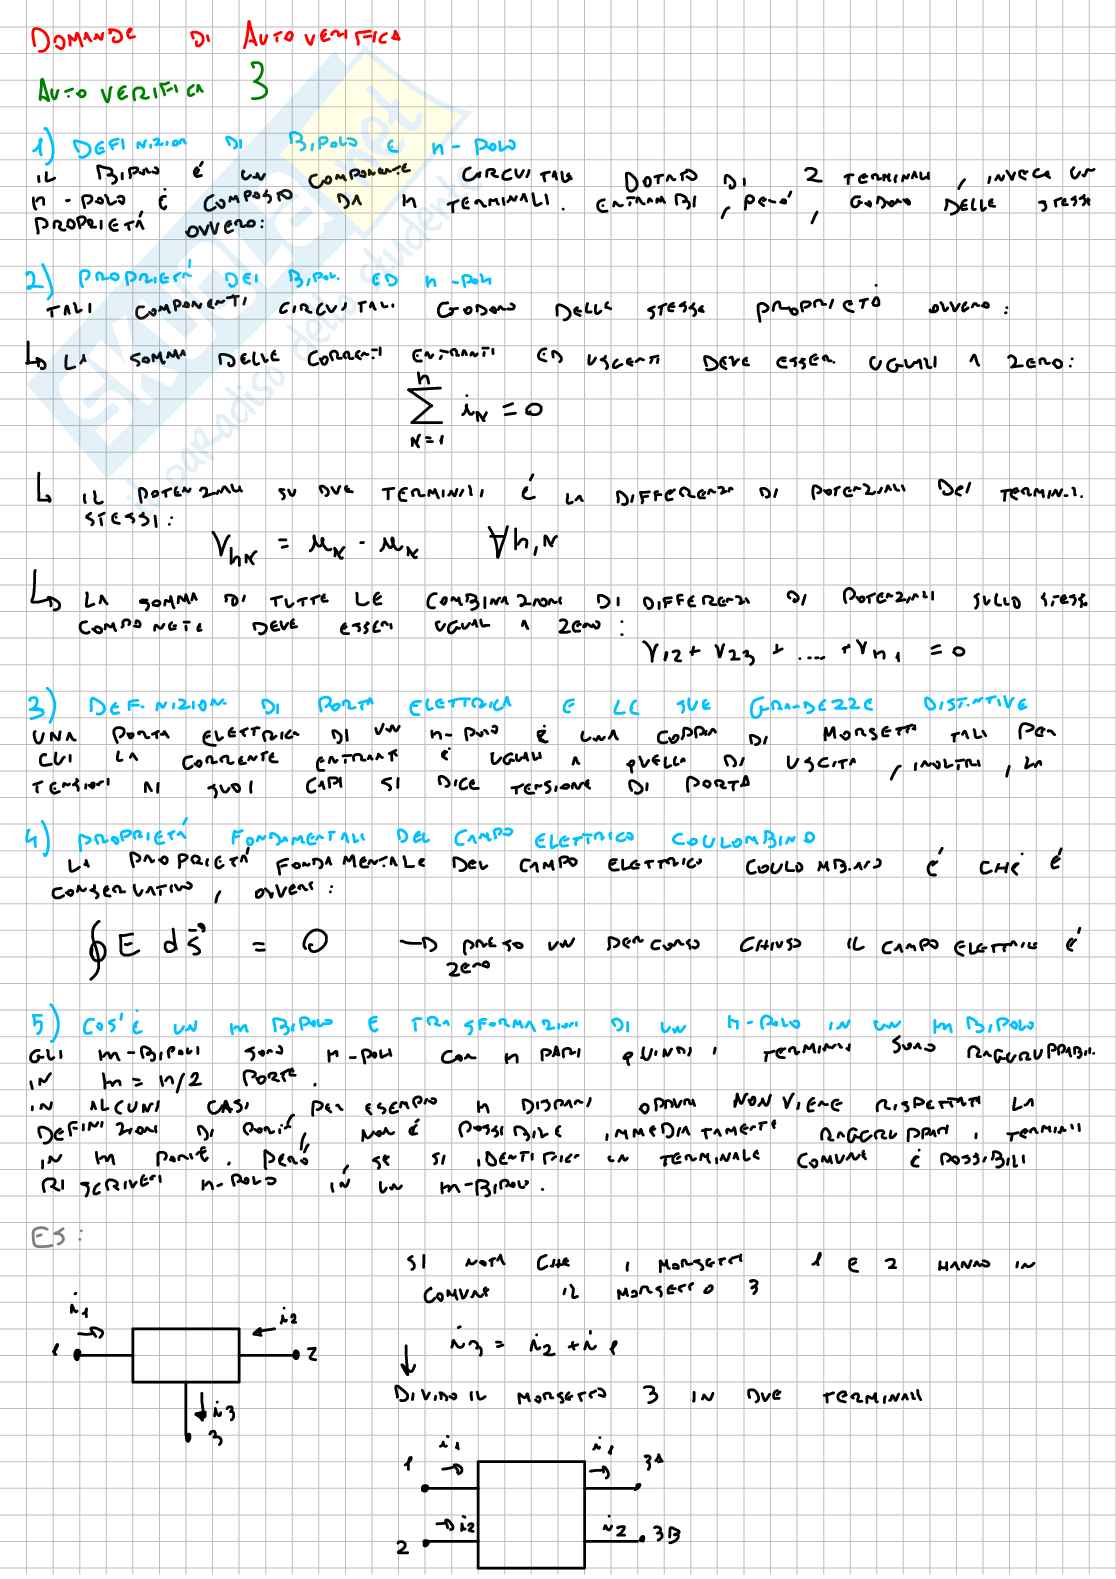 DOMANDE DI AUTOVERIFICA
AUTOVERIFICA 3
1) DEFINIZION DI BIPOLO E n-POLO
IL BIPOLO É UN COMPONENTE CIRCUITALE DOTATO DI 2 TERMINALI, INVECE UN
n-POLO É COMPOSTO DA n TERMINALI. ENTRAMBI, PERÓ, GODONO DELLE STESSE
PROPRIETÁ OVVERO:
2) PROPRIETÁ DEI BIPOLI ED n-POLI
TALI COMPONENTI CIRCUITALI GODONO DELLE STESSE PROPRIETÓ OVVERO:
↳ LA SOMMA DELLE CORRENTI ENTRANTI ED USCENTI DEVE ESSER UGUALI A ZERO:
n
∑ iₖ = 0
K=1
↳ IL POTENZIALE SU DUE TERMINALI É LA DIFFERENZA DI POTENZIALI DEI TERMINALI
STESSI:
Vhk = uk - uk ∀h,k
↳ LA SOMMA DI TUTTE LE COMBINAZIONI DI DIFFERENZA DI POTENZIALI SULLO STESSO
COMPONETE DEVE ESSERE UGUAL A ZERO:
V12 + V23 + .... + Vn1 = 0
3) DEFINIZIONE DI PORTA ELETTRICA E LE SUE GRANDEZZE DISTINTIVE
UNA PORTA ELETTRICA DI UN n-POLO É UNA COPPIA DI MORSETTI TALI PER
CUI LA CORRENTE ENTRANTE É UGUALE A QUELLA DI USCITA, INOLTRE, LA
TENSIONE AI SUOI CAPI SI DICE TENSIONE DI PORTA
4) PROPRIETÁ FONDAMENTALI DEL CAMPO ELETTRICO COULOMBINO
LA PROPRIETÁ FONDAMENTALE DEL CAMPO ELETTRICO COULOMBIANO É CHE É
CONSERVATIVO, OVVERO:
∮ E ds⃗ = 0 → PRESO UN PERCORSO CHIUSO IL CAMPO ELETTRICO É
ZERO
5) COS'É UN m BIPOLO E TRASFORMAZIONI DI UN n-POLO IN UN m BIPOLO
GLI m-BIPOLI SONO n-POLI CON n PARI QUINDI I TERMINALI SONO RAGGRUPPABILI
IN m = n/2 PORTE.
IN ALCUNI CASI, PER ESEMPIO n DISPARI OPPURE NON VIENE RISPETTATA LA
DEFINIZIONE DI PORTA, NON É POSSIBILE IMMEDIATAMENTE RAGGRUPPARE I TERMINALI
IN m PORTE. PERÓ, SE SI IDENTIFICA UN TERMINALE COMUNE É POSSIBILE
RISCRIVERE n-POLO IN UN m-BIPOLO.
ES:
SI NOTA CHE I MORSETTI 1 E 2 HANNO IN
COMUNE IL MORSETTO 3
i1 i2
1 2
i3
3
i3 = i2 + i1
↓
DIVIDO IL MORSETTO 3 IN DUE TERMINALI
1 i1 i1 3A
2 i2 i2 3B
SKUOLA.net
il paradiso dello studente